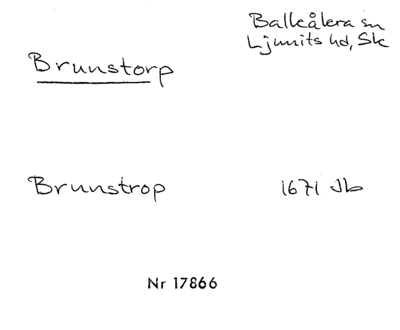 Balkåkra sn
Ljunits hd, Sk
Brunstorp
Brunstrop 1671 Jb
Nr 17866